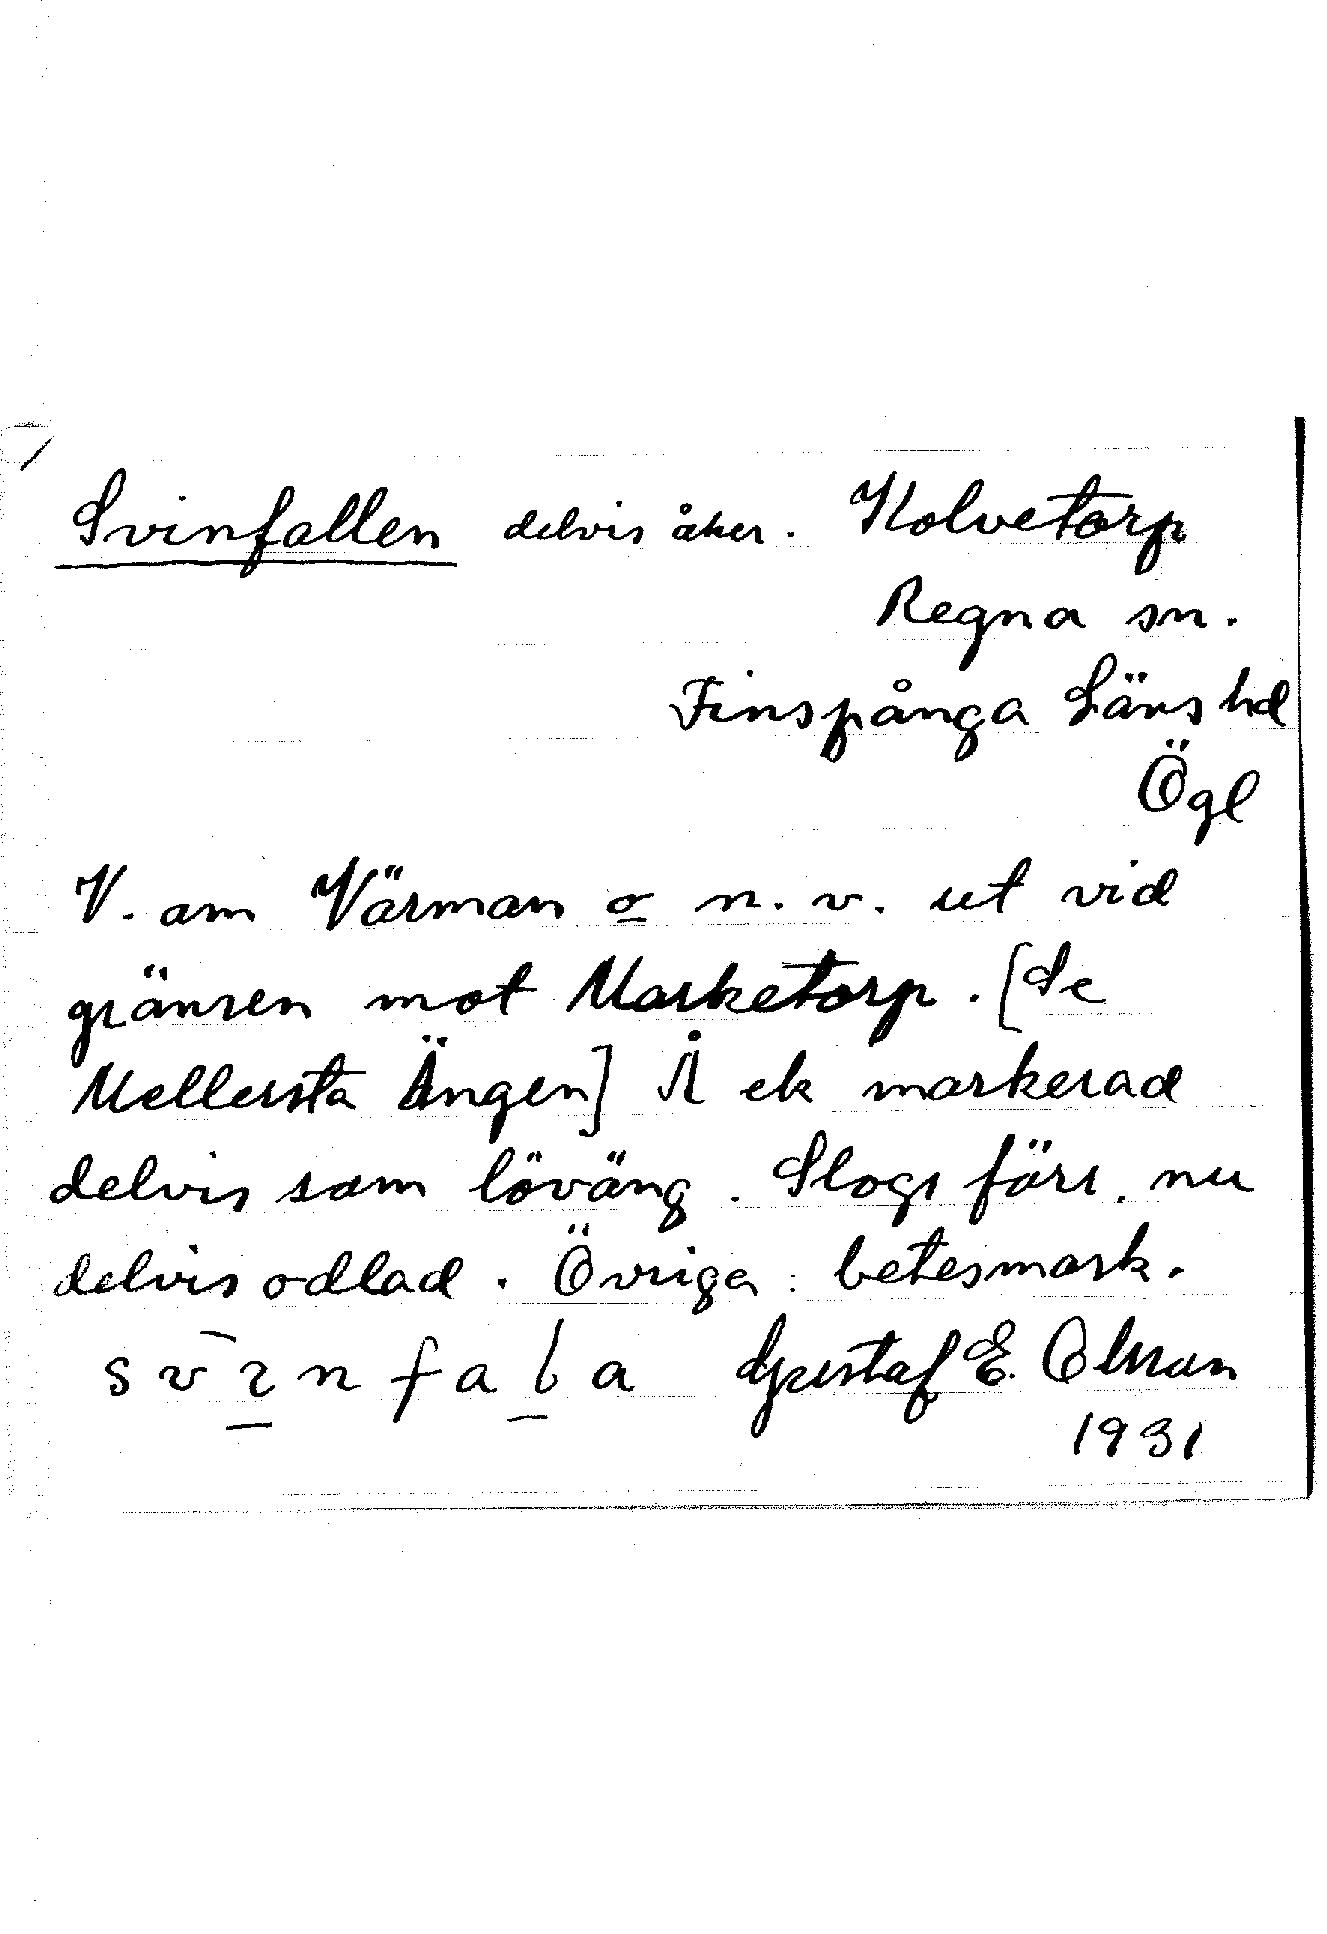 Svinfallen delvis åker. Kolvetorp
Regna sn.
Finspånga Läns hd
Ögl
V. om Värman o n.v. ut vid
gränsen mot Marketorp. [Se
Mellersta Ängen] Å ek markerad
delvis som löväng. Slogs förr. nu
delvis odlad. Övriga: betesmark.
svinfala Gustaf E. Olsson
1931